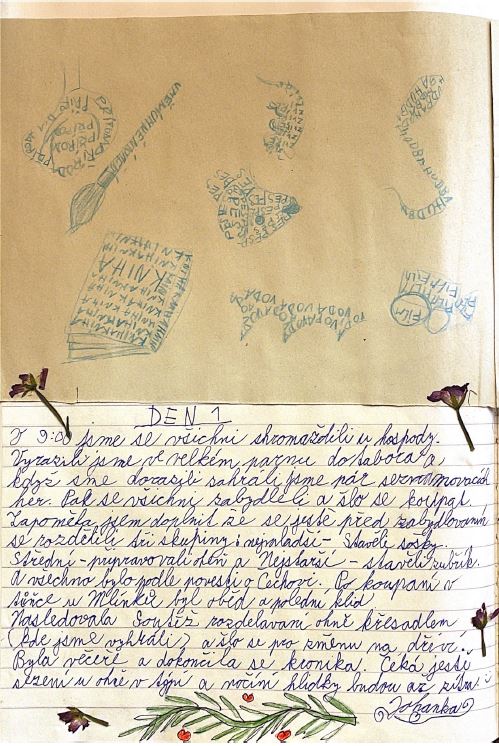 PŘÍRODA
UMĚNÍ
KNIHA KNIHA KNIHA
KNIHA
PES PES PES
VODA VODA VODA VODA
HUDBA HUDBA HUDBA
FILM
DEN 1
V 9:00 jsme se všichni shromáždili u hospody.
Vyrazili jsme ve velkém parnu do tábora a
když sme dorazili sahráli jsme pár seznamovacích
her. Pak se všichni zabydleli a šlo se koupat.
Zapoměla jsem doplnit že se ještě před zabydlováním
se rozdělili tři skupiny: nejmladší - Stavěli sošky.
Střední - připravovali oheň a Nejstarší - stavěli zubřík.
A všechno bylo podle pověsti o Čechovi. Po koupání v
tůňce u Mlínků byl oběd a polední klid
Následovala Soutěž rozdělávání ohně křesadlem
(kde jsme vyhráli) a šlo se pro změnu na dříví.
Byla večeře a dokončila se kronika. Čeká ještě
sezení u ohně v týpí a noční hlídky budou až zítra
Johanka